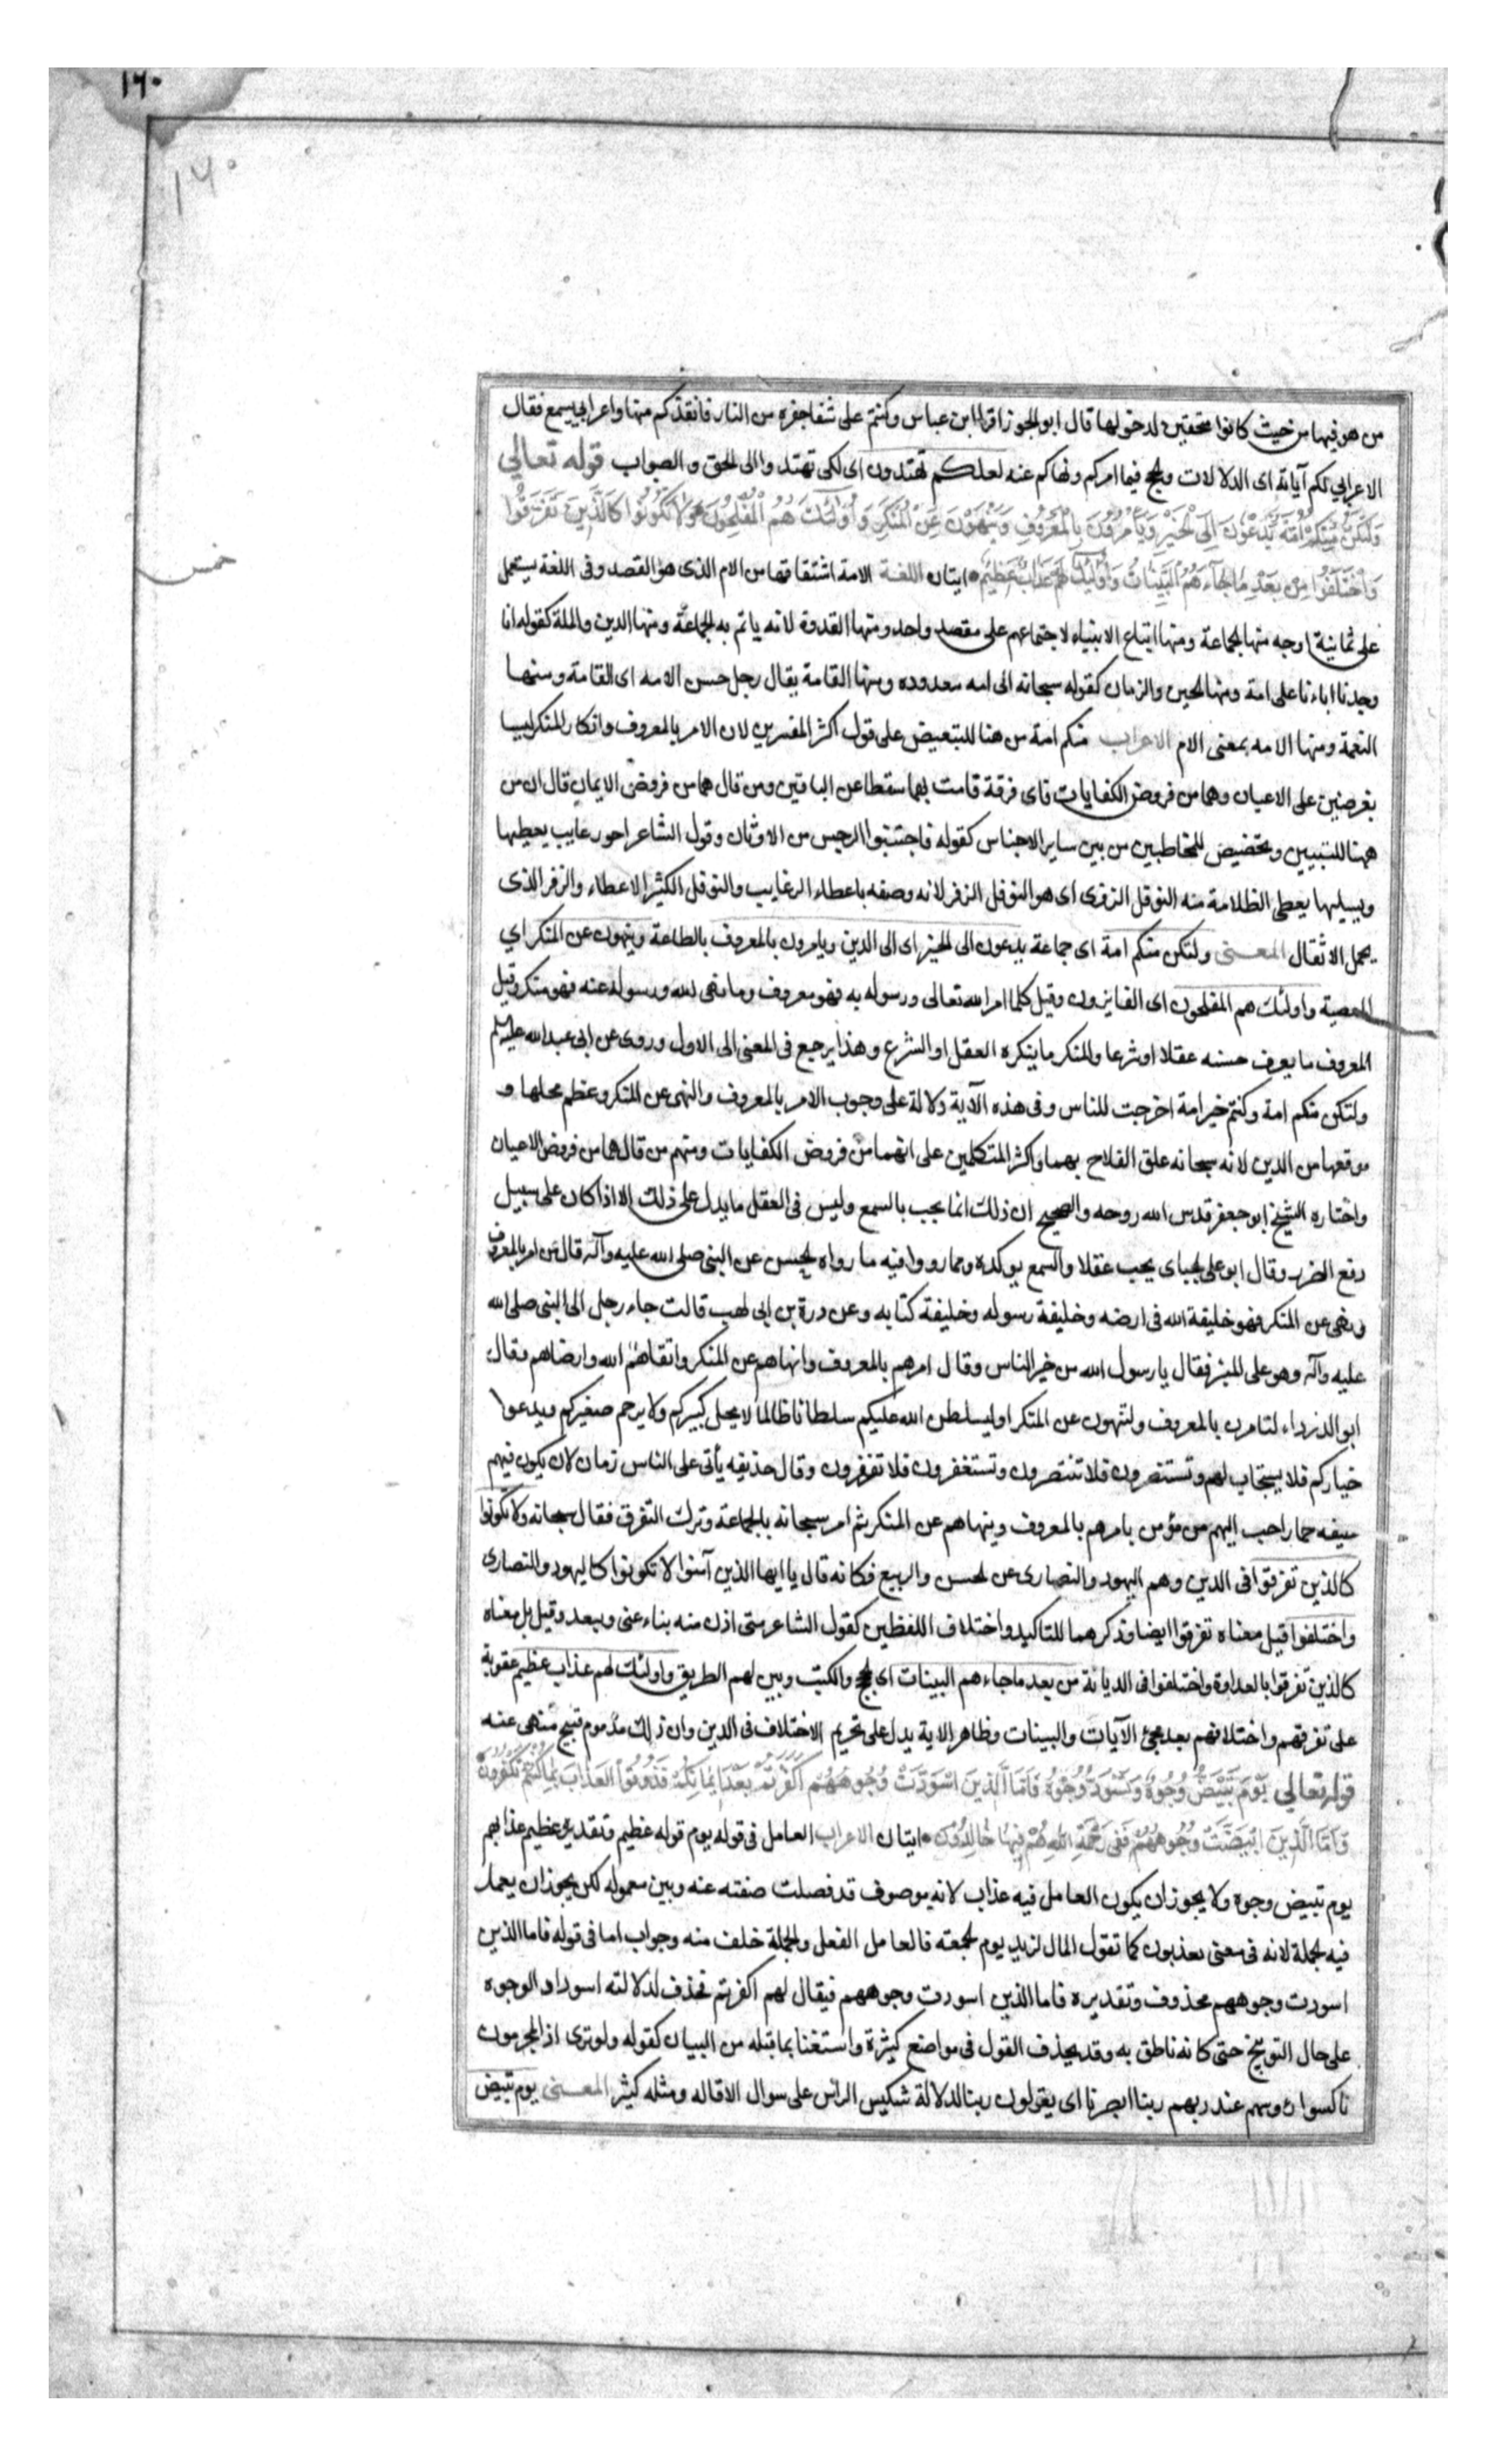 ١٦٠
١٦٠
من هو فيها من حيث كانوا مستحقين لدخولها قال ابو الجوزا قرا ابن عباس وكنتم على شفا حفره من النار فانقذكم منها واعرابي يسمع فقال
الاعرابي لكم آياته اى الدلالات والحجج فيما امركم ونهاكم عنه لعلكم تهتدون اى لكى تهتدوا الى الحق و الصواب قوله تعالي
وَلْتَكُنْ مِنْكُمْ اُمَّةٌ يَدْعُونَ اِلَى الْخَيْرِ وَيَأْمُرُونَ بِالْمَعْرُوفِ وَيَنْهَوْنَ عَنِ الْمُنْكَرِ وَاُولٰئِكَ هُمُ الْمُفْلِحُونَ وَلَا تَكُونُوا كَالَّذِينَ تَفَرَّقُوا
وَاخْتَلَفُوا مِنْ بَعْدِ مَا جَاءَهُمُ الْبَيِّنَاتُ وَاُولٰئِكَ لَهُمْ عَذَابٌ عَظِيمٌ ايتان اللغة الامة اشتقاقها من الام الذى هو القصد وفى اللغة يستعمل
على ثمانية اوجه منها الجماعة ومنها اتباع الانبياء لاجتماعهم على مقصد واحد ومنها القدوة لانه ياتم به الجماعة ومنها الدين والملة كقوله انا
وجدنا اباءنا على امة ومنها الحين والزمان كقوله سبحانه الى امه معدوده ومنها القامة يقال رجل حسن الامه اى القامة ومنها
النعمة ومنها الامه بمعنى الام الاعراب منكم امة من هنا للتبعيض على قول اكثر المفسرين لان الامر بالمعروف وانكار المنكر ليسا
بفرضين على الاعيان وهما من فروض الكفايات فاى فرقة قامت بهما سقطا عن الباقين ومن قال هما من فروض الايمان قال ان من
ههنا للتبيين وتخصيص المخاطبين من بين ساير الاجناس كقوله فاجتنبوا الرجس من الاوثان وقول الشاعر اخو رغايب يعطيها
ويسيلها يعطى الظلامة منه النوفل الزفرى اى هو النوفل الزفر لانه وصفه باعطاء الرغايب والنوفل الكثير الاعطاء والزفر الذى
يحمل الاثقال المعنى ولتكن منكم امة اى جماعة يدعون الى الخير اى الى الدين ويامرون بالمعروف بالطاعة وينهون عن المنكر اي
المعصية واولئك هم المفلحون اى الفايزون وقيل كلما امر الله تعالى ورسوله به فهو معروف وما نهى الله ورسوله عنه فهو منكر وقيل
المعروف ما يعرف حسنه عقلا او شرعا والمنكر ما ينكره العقل او الشرع وهذا يرجع فى المعنى الى الاول وروى عن ابى عبد الله عليه السلم
ولتكن منكم امة وكنتم خير امة اخرجت للناس وفى هذه الآية دلالة على وجوب الامر بالمعروف والنهى عن المنكر وعظم محلها و
موقعها من الدين لانه سبحانه علق الفلاح بهما واكثر المتكلمين على انهما من فروض الكفايات ومنهم من قال هما من فروض الاعيان
واختاره الشيخ ابو جعفر قدس الله روحه والصحيح ان ذلك انما يجب بالسمع وليس فى العقل ما يدل على ذلك الا اذا كان على سبيل
دفع الضرر وقال ابو على الجباى يجب عقلا والسمع يوكده ومما رووا فيه ما رواه الحسن عن النبى صلى الله عليه وآله قال من امر بالمعروف
ونهى عن المنكر فهو خليفة الله فى ارضه وخليفة رسوله وخليفة كتابه وعن درة بن ابى لهب قالت جاء رجل الى النبى صلى الله
عليه وآله وهو على المنبر فقال يا رسول الله من خير الناس وقال امرهم بالمعروف وانهاهم عن المنكر واتقاهم الله وارضاهم وقال
ابو الدرداء لتامرن بالمعروف ولتنهون عن المنكر او ليسلطن الله عليكم سلطانا ظالما لا يجل كبيركم ولا يرحم صغيركم ويدعوا
خياركم فلا يستجاب لهم وتستنصرون فلا تنتصرون وتستغفرون فلا تغفرون وقال حذيفه يأتى على الناس زمان لان يكون فيهم
جيفه حمار احب اليهم من مؤمن يامرهم بالمعروف وينهاهم عن المنكر ثم امر سبحانه بالجماعة وترك التفرق فقال سبحانه ولا تكونوا
كالذين تفرقوا فى الدين وهم اليهود والنصارى عن الحسن والربيع فكانه قال يا ايها الذين آمنوا لا تكونوا كاليهود والنصارى
واختلفوا قيل معناه تفرقوا ايضا وذكرهما للتاكيد واختلاف اللفظين كقول الشاعر متى ادن منه يناء عنى ويبعد وقيل بل معناه
كالذين تفرقوا بالعداوة واختلفوا فى الديانة من بعد ما جاءهم البينات اى الحجج والكتب وبين لهم الطريق واولئك لهم عذاب عظيم عقوبة
على تفرقهم واختلافهم بعد مجئ الآيات والبينات وظاهر الاية يدل على تحريم الاختلاف فى الدين وان ذلك مذموم قبيح منهى عنه
قوله تعالي يَوْمَ تَبْيَضُّ وُجُوهٌ وَتَسْوَدُّ وُجُوهٌ فَاَمَّا الَّذِينَ اسْوَدَّتْ وُجُوهُهُمْ اَكَفَرْتُمْ بَعْدَ اِيمَانِكُمْ فَذُوقُوا الْعَذَابَ بِمَا كُنْتُمْ تَكْفُرُونَ
وَاَمَّا الَّذِينَ ابْيَضَّتْ وُجُوهُهُمْ فَفِى رَحْمَةِ اللهِ هُمْ فِيهَا خَالِدُونَ ايتان الاعراب العامل فى قوله يوم قوله عظيم وتقديره عظيم عذابهم
يوم تبيض وجوه ولا يجوز ان يكون العامل فيه عذاب لانه موصوف قد فصلت صفته عنه وبين معموله لكن يجوز ان يعمل
فيه الجملة لانه فى معنى يعذبون كما تقول المال لزيد يوم الجمعة فالعامل الفعل والجملة خلف منه وجواب اما فى قوله فاما الذين
اسودت وجوههم محذوف وتقديره فاما الذين اسودت وجوههم فيقال لهم اكفرتم فحذف لدلالته اسوداد الوجوه
على حال التوبيخ حتى كانه ناطق به وقد يحذف القول فى مواضع كثيرة واستغنا بما قبله من البيان كقوله ولو ترى اذ المجرمون
ناكسوا رؤسهم عند ربهم ربنا ابصرنا اى يقولون ربنا لدلالة تنكيس الرأس على سوال الاقاله ومثله كثير المعنى يوم تبيض